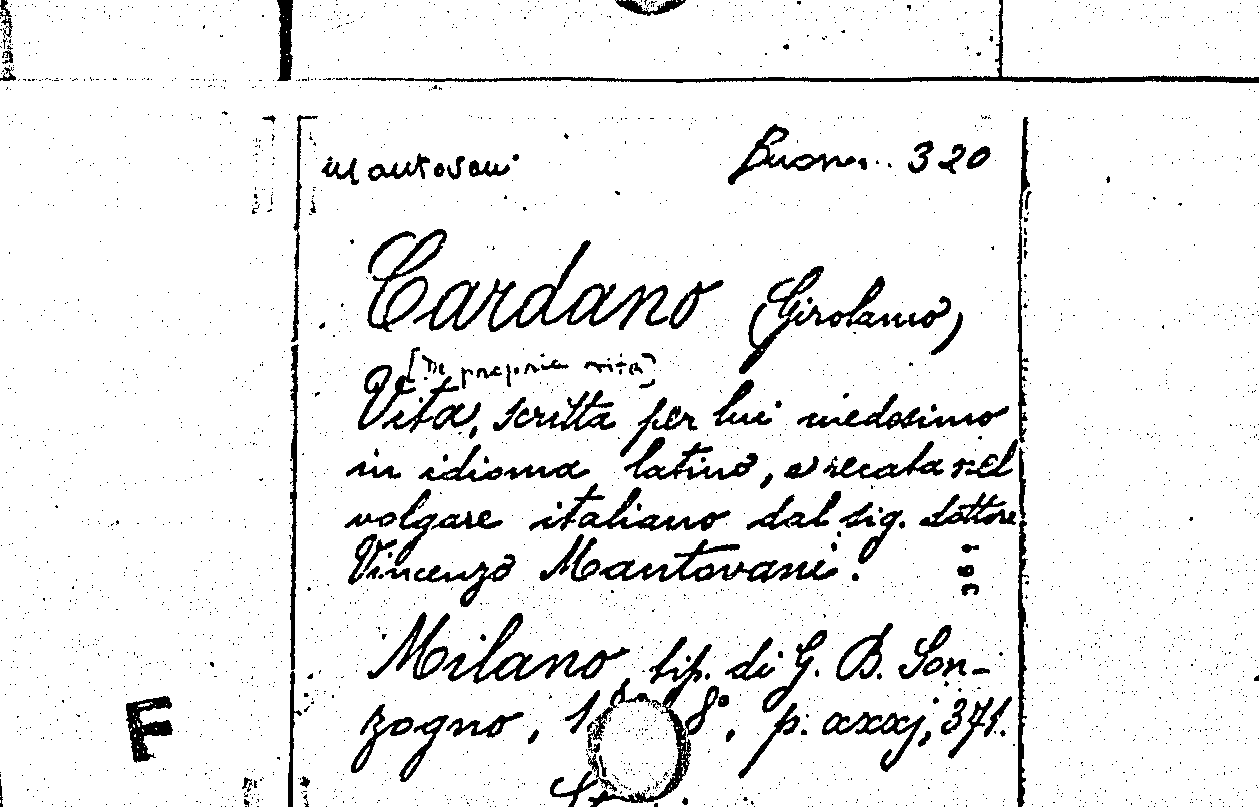 Mantovani Buonar. 320
Cardano (Girolamo)
[De propria vita]
Vita, scritta per lui medesimo
in idioma latino, e recata nel
volgare italiano dal sig. dottore
Vincenzo Mantovani.
Milano, tip. di G. B. Son-
zogno, 8°, p. xxxj, 371.
F